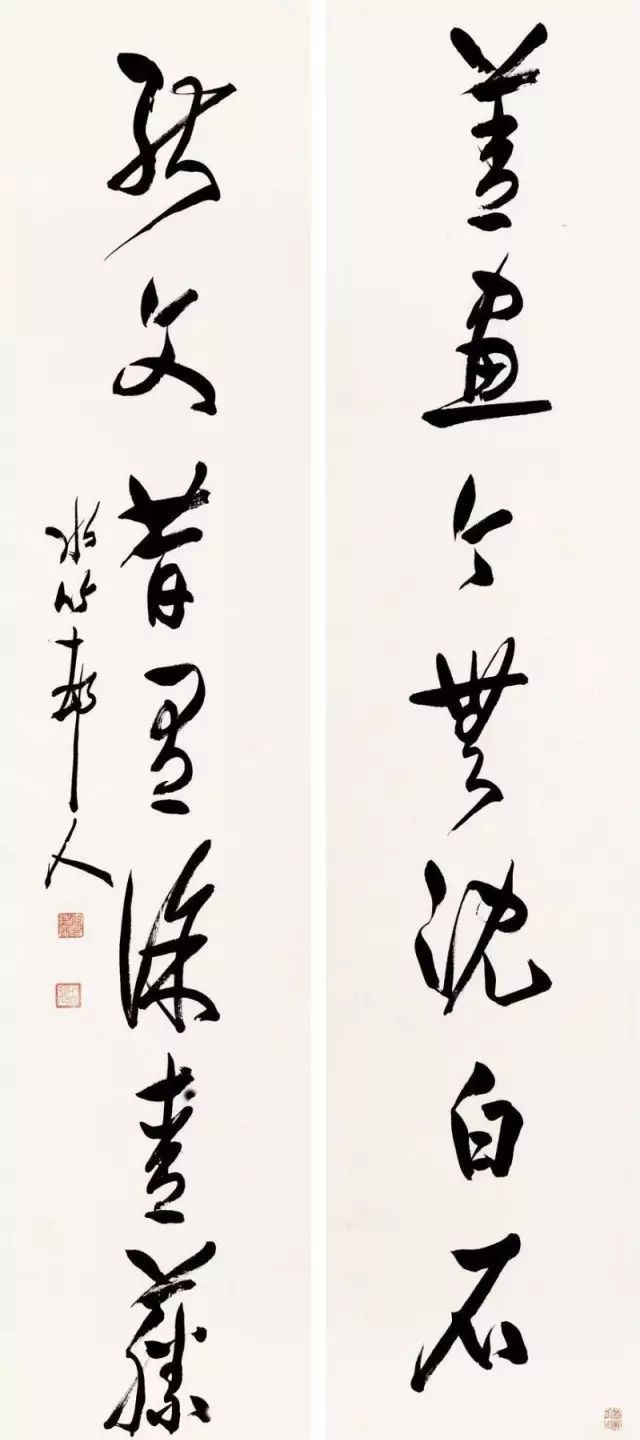 善畫今無沈白石
能文昔有徐青藤
水竹邨人